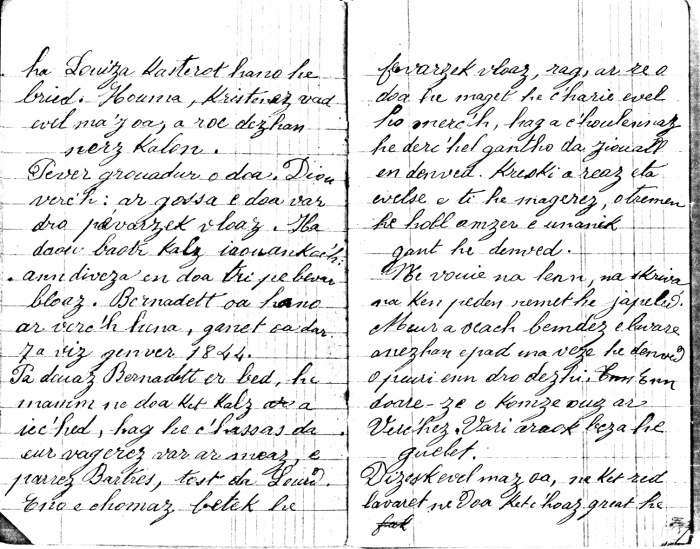 ha Louiza Kasterot hano he
bried. Houma, Kristenez vad
evel ma'z oa, a roe dezhan
nerz Kalon.
Pever grouadur o doa. Diou
verc'h: ar gossa e doa var
dro pévarzek vloaz. Ha
daou baotr Kalz iaouankoc'h:
ann diveza en doa tri pe bevar
bloaz. Bernadett oa hano
ar verc'h hena, ganet oa d'ar
7 a viz genver 1844.
Pa douaz Bernadett er bed, he
mamm ne doa Ket Kalz a
iec'hed, hag he c'hassas da
eur vagerez var ar meaz, e
parrez Bartres, tost da Lourd.
Eno e chomaz betek he
fevarzek vloaz, rag, ar re o
doa he maget he c'harie evel
ho merc'h, hag a c'houlennaz
he derc'hel gantho da ziouall
en denved. Kreski a reaz eta
evelse e ti he magerez, o tremen
he holl amzer e unanik
gant he denved.
Ne vouie na lenn, na skriva
na Ken peden nemet he japeled.
Meur a veach bemdez e lavare
anezhan epad ma veze he denved
o peuri enn dro dezhi. Enn
doare-ze e Komze oug ar
Verc'hez. Vari araok beza he
guelet.
Dizesk evel maz oa, ne Ket red
lavaret ne doa Ket c'hoaz great he